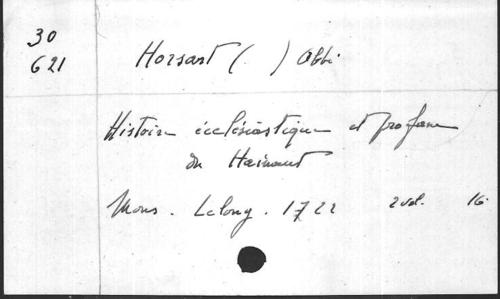 30
621
Horsart ( . ) Abbé
Histoire écclésiastique et profane
du Hainaut
Mons . Lelong . 1722 2 vol. 16.